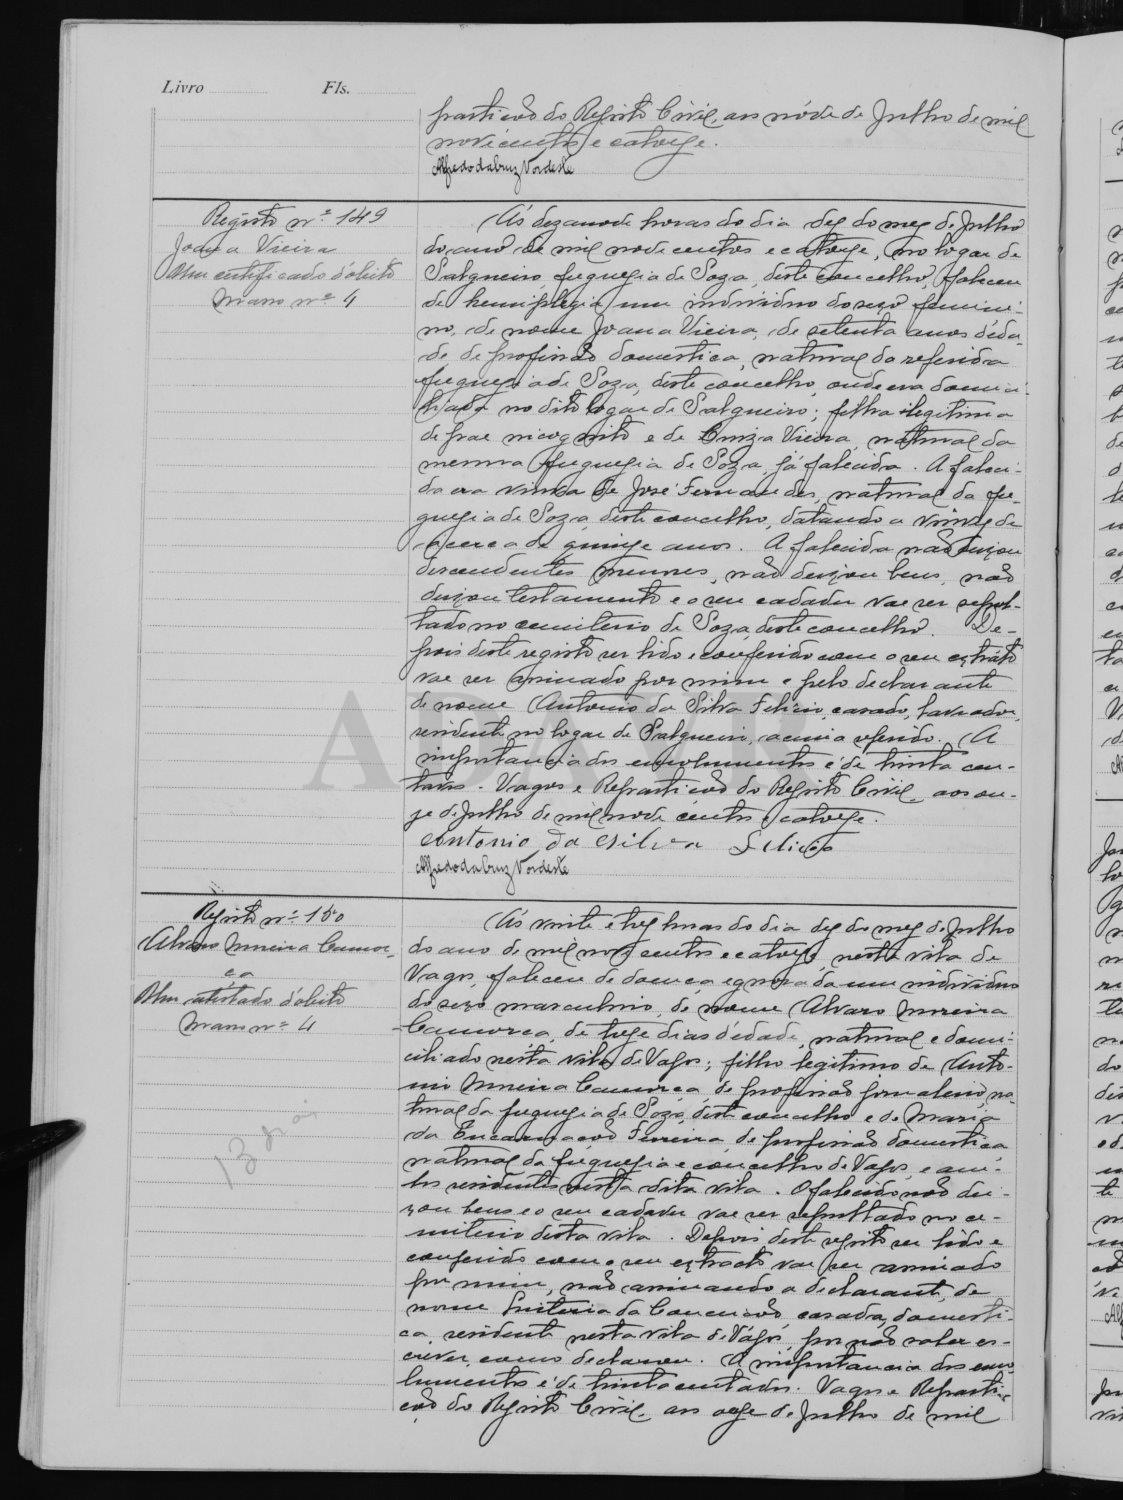 Livro Fls.
partição do Registo Civil, aos nóve de Julho de mil
novecentos e catorze.
Alfredo da Cruz Nordeste
Registo nº 149
Joana Vieira
Um certificado d'óbito
Maço nº 4
Ás dezanove horas do dia dez do mez de Julho
do ano de mil nove centos e catorze, no logar de
Salgueiro, freguezia de Soza, deste concelho, faleceu
de hemiplegia um individuo do sexo femini-
no, de nome Joana Vieira, de setenta anos d'eda-
de de profissão domestica, natural da referida
freguezia de Soza, deste concelho, onde era domici-
liada no dito logar de Salgueiro; filha ilegitima
de pae incognito e de Vieira, natural da
mesma freguezia de Soza, já falecida. A faleci-
da era viuva de José Fernandes, natural da fre-
guezia de Soza, deste concelho, datando a viuvez de
acerca de quinze anos. A falecida não deixou
descendentes menores, não deixou bens, não
deixou testamento e o seu cadaver vae ser sepul-
tado no cemiterio de Soza, deste concelho. De-
pois deste registo ser lido e conferido com o seu extráto
vae ser assinado por mim e pelo declarante
de nome Antonio da Silva Felicio, casado, lavrador,
residente no logar de Salgueiro, acima referido. A
importancia dos emolumentos é de trinta cen-
tavos. Vagos e Repartição do Registo Civil, aos on-
ze de Julho de mil nove centos e catorze.
Antonio da Silva Felicio
Alfredo da Cruz Nordeste
ADAVR
Registo nº 150
Alvaro Moreira Camor-
ça
Um atestado d'óbito
Maço nº 4
13 dias
Ás vinte e trez horas do dia dez do mez de Julho
do ano de mil nove centos e catorze, nesta vila de
Vagos, faleceu de doença egnorada um individuo
do sexo masculino, de nome Alvaro Moreira
Camorça, de treze dias d'edade, natural e domi-
ciliado nesta vila de Vagos; filho legitimo de Anto-
nio Moreira Camorça, de profissão jornaleiro, na-
tural da freguezia de Soza, deste concelho e de Maria
da Encarnação Ferreira, de profissão domestica
natural da freguezia e concelho de Vagos, e am-
bos residentes nesta dita vila. O falecido não dei-
xou bens e o seu cadaver vae ser sepultado no ce-
miterio desta vila. Depois deste registo ser lido e
conferido com o seu extracto vae ser assinado
por mim, não assinando a declarante, de
nome Quiteria da Conceição, casada, domesti-
ca, residente nesta vila de Vágos, por não saber es-
crever, como declarou. A importancia dos emo-
lumentos é de trinta centavos. Vagos e Reparti-
ção do Registo Civil, aos onze de Julho de mil